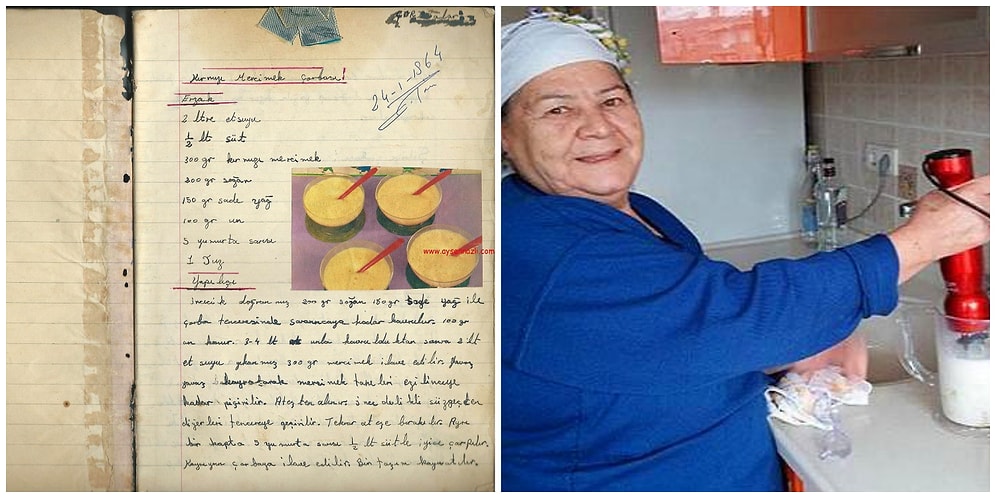 24-1-1964
Kırmızı Mercimek Çorbası!
Erzak
2 ltre etsuyu
1/2 lt süt
300 gr kırmızı mercimek
200 gr soğan
150 gr sade yağ
100 gr un
5 yumurta sarısı
1 Tuz
Yapılışı
İncecik doğranmış 200 gr soğan 150 gr sade yağ ile
çorba tenceresinde sararıncaya kadar kavrulur. 100 gr
un konur. 3-4 unla kavrulduktan sonra 2 lt
et suyu yıkanmış 300 gr mercimek ilave edilir. Yavaş
yavaş kaynatarak mercimek taneleri ezilinceye
kadar pişirilir. Ateşten alınır ince delikli süzgeçten
diğer bir tencereye geçirilir. Tekrar ateşe bırakılır. Ayrı
bir kapta 5 yumurta sarısı 1/2 lt sütle iyice çarpılır.
Kaynayan çorbaya ilave edilir. Bir taşım kaynatılır.